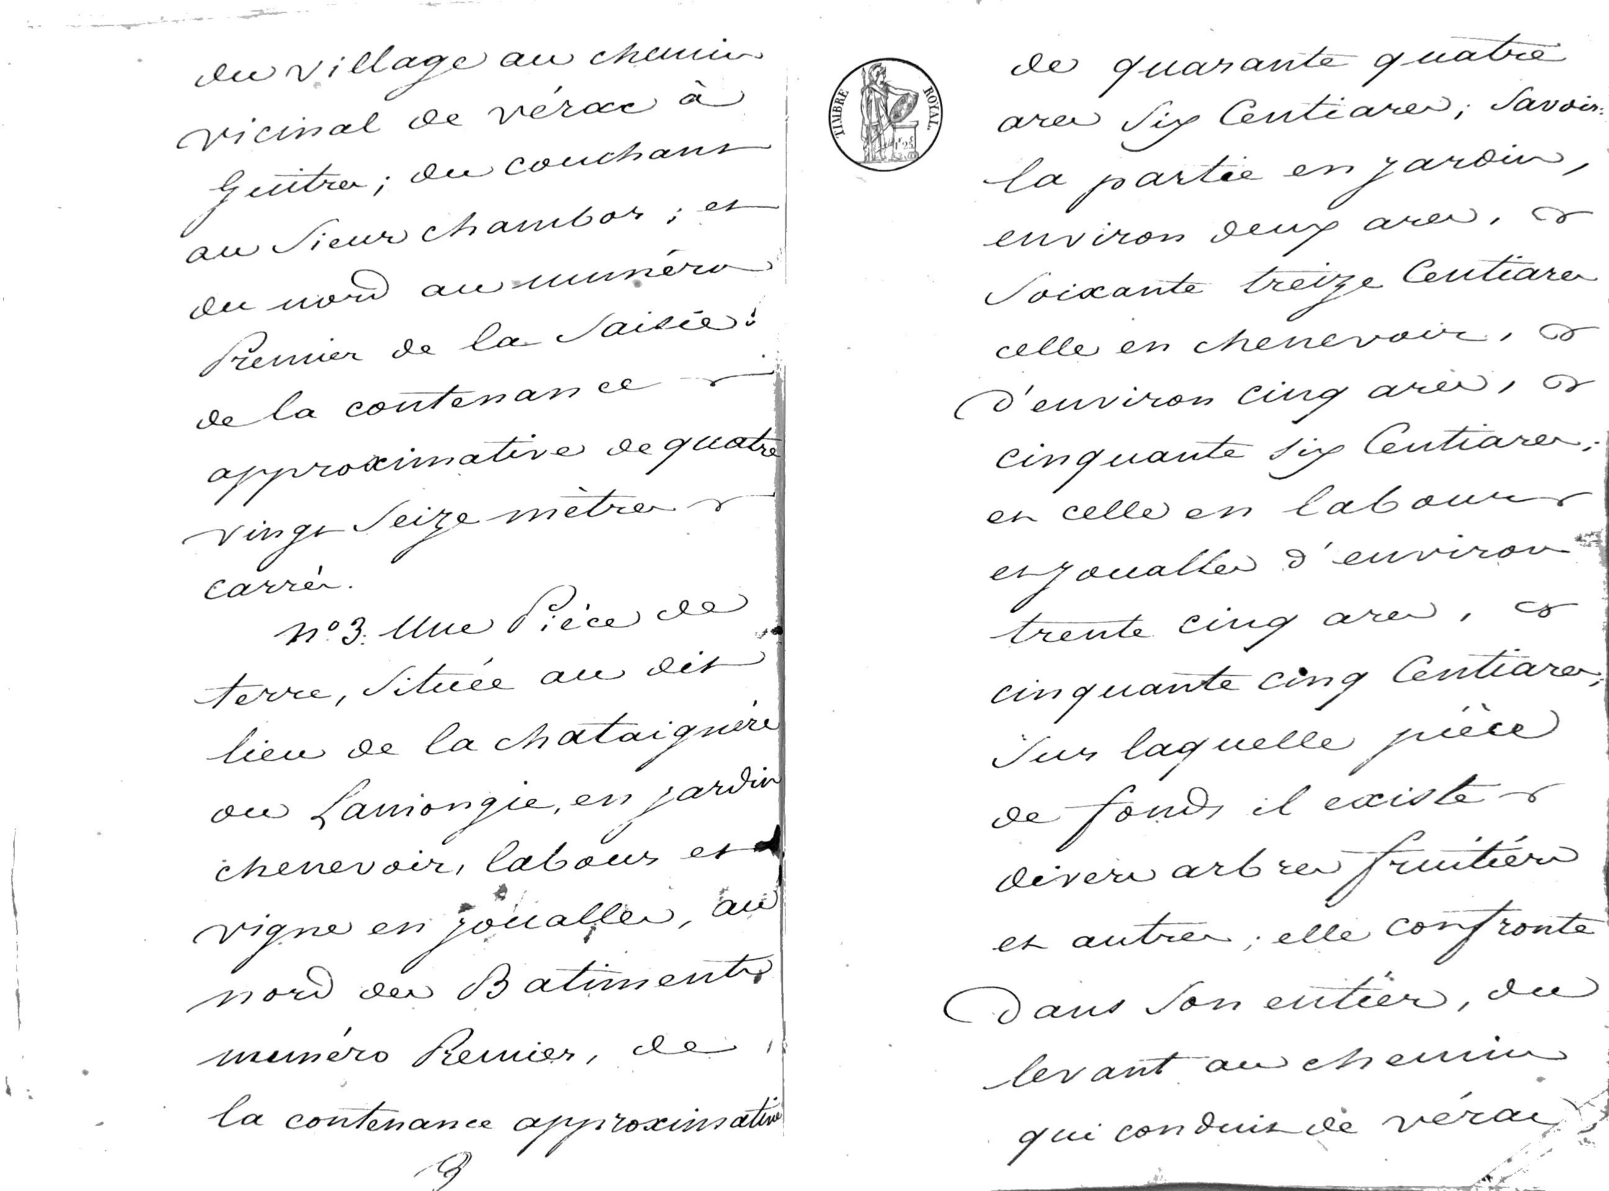 du village au chemin
vicinal de vérac à
Guitres; du couchant
au Sieur chambor; et
du nord au numéro
Premier de la Saisie:
de la contenance
approximative de quatre
vingt Seize mètres
carrés.
n.o 3. Une Pièce de
terre, Située au dit
lieu de la chataignère
ou Lamongie, en jardin
chenevoir, labour et
vigne en joualles, au
nord des Batiments
numéro Premier, de
la contenance approximative
TIMBRE ROYAL.
de quarante quatre
ares Six Centiares; Savoir:
la partie en jardin,
environ deux ares,
Soixante treize Centiares
celle en chenevoir,
d'environ cinq ares,
cinquante Six Centiares;
et celle en labour
et joualles d'environ
trente cinq ares,
cinquante cinq Centiares;
Sur laquelle pièce
de fonds il existe
divers arbres fruitiers
et autres; elle confronte
Dans Son entier, du
levant au chemin
qui conduit de vérac